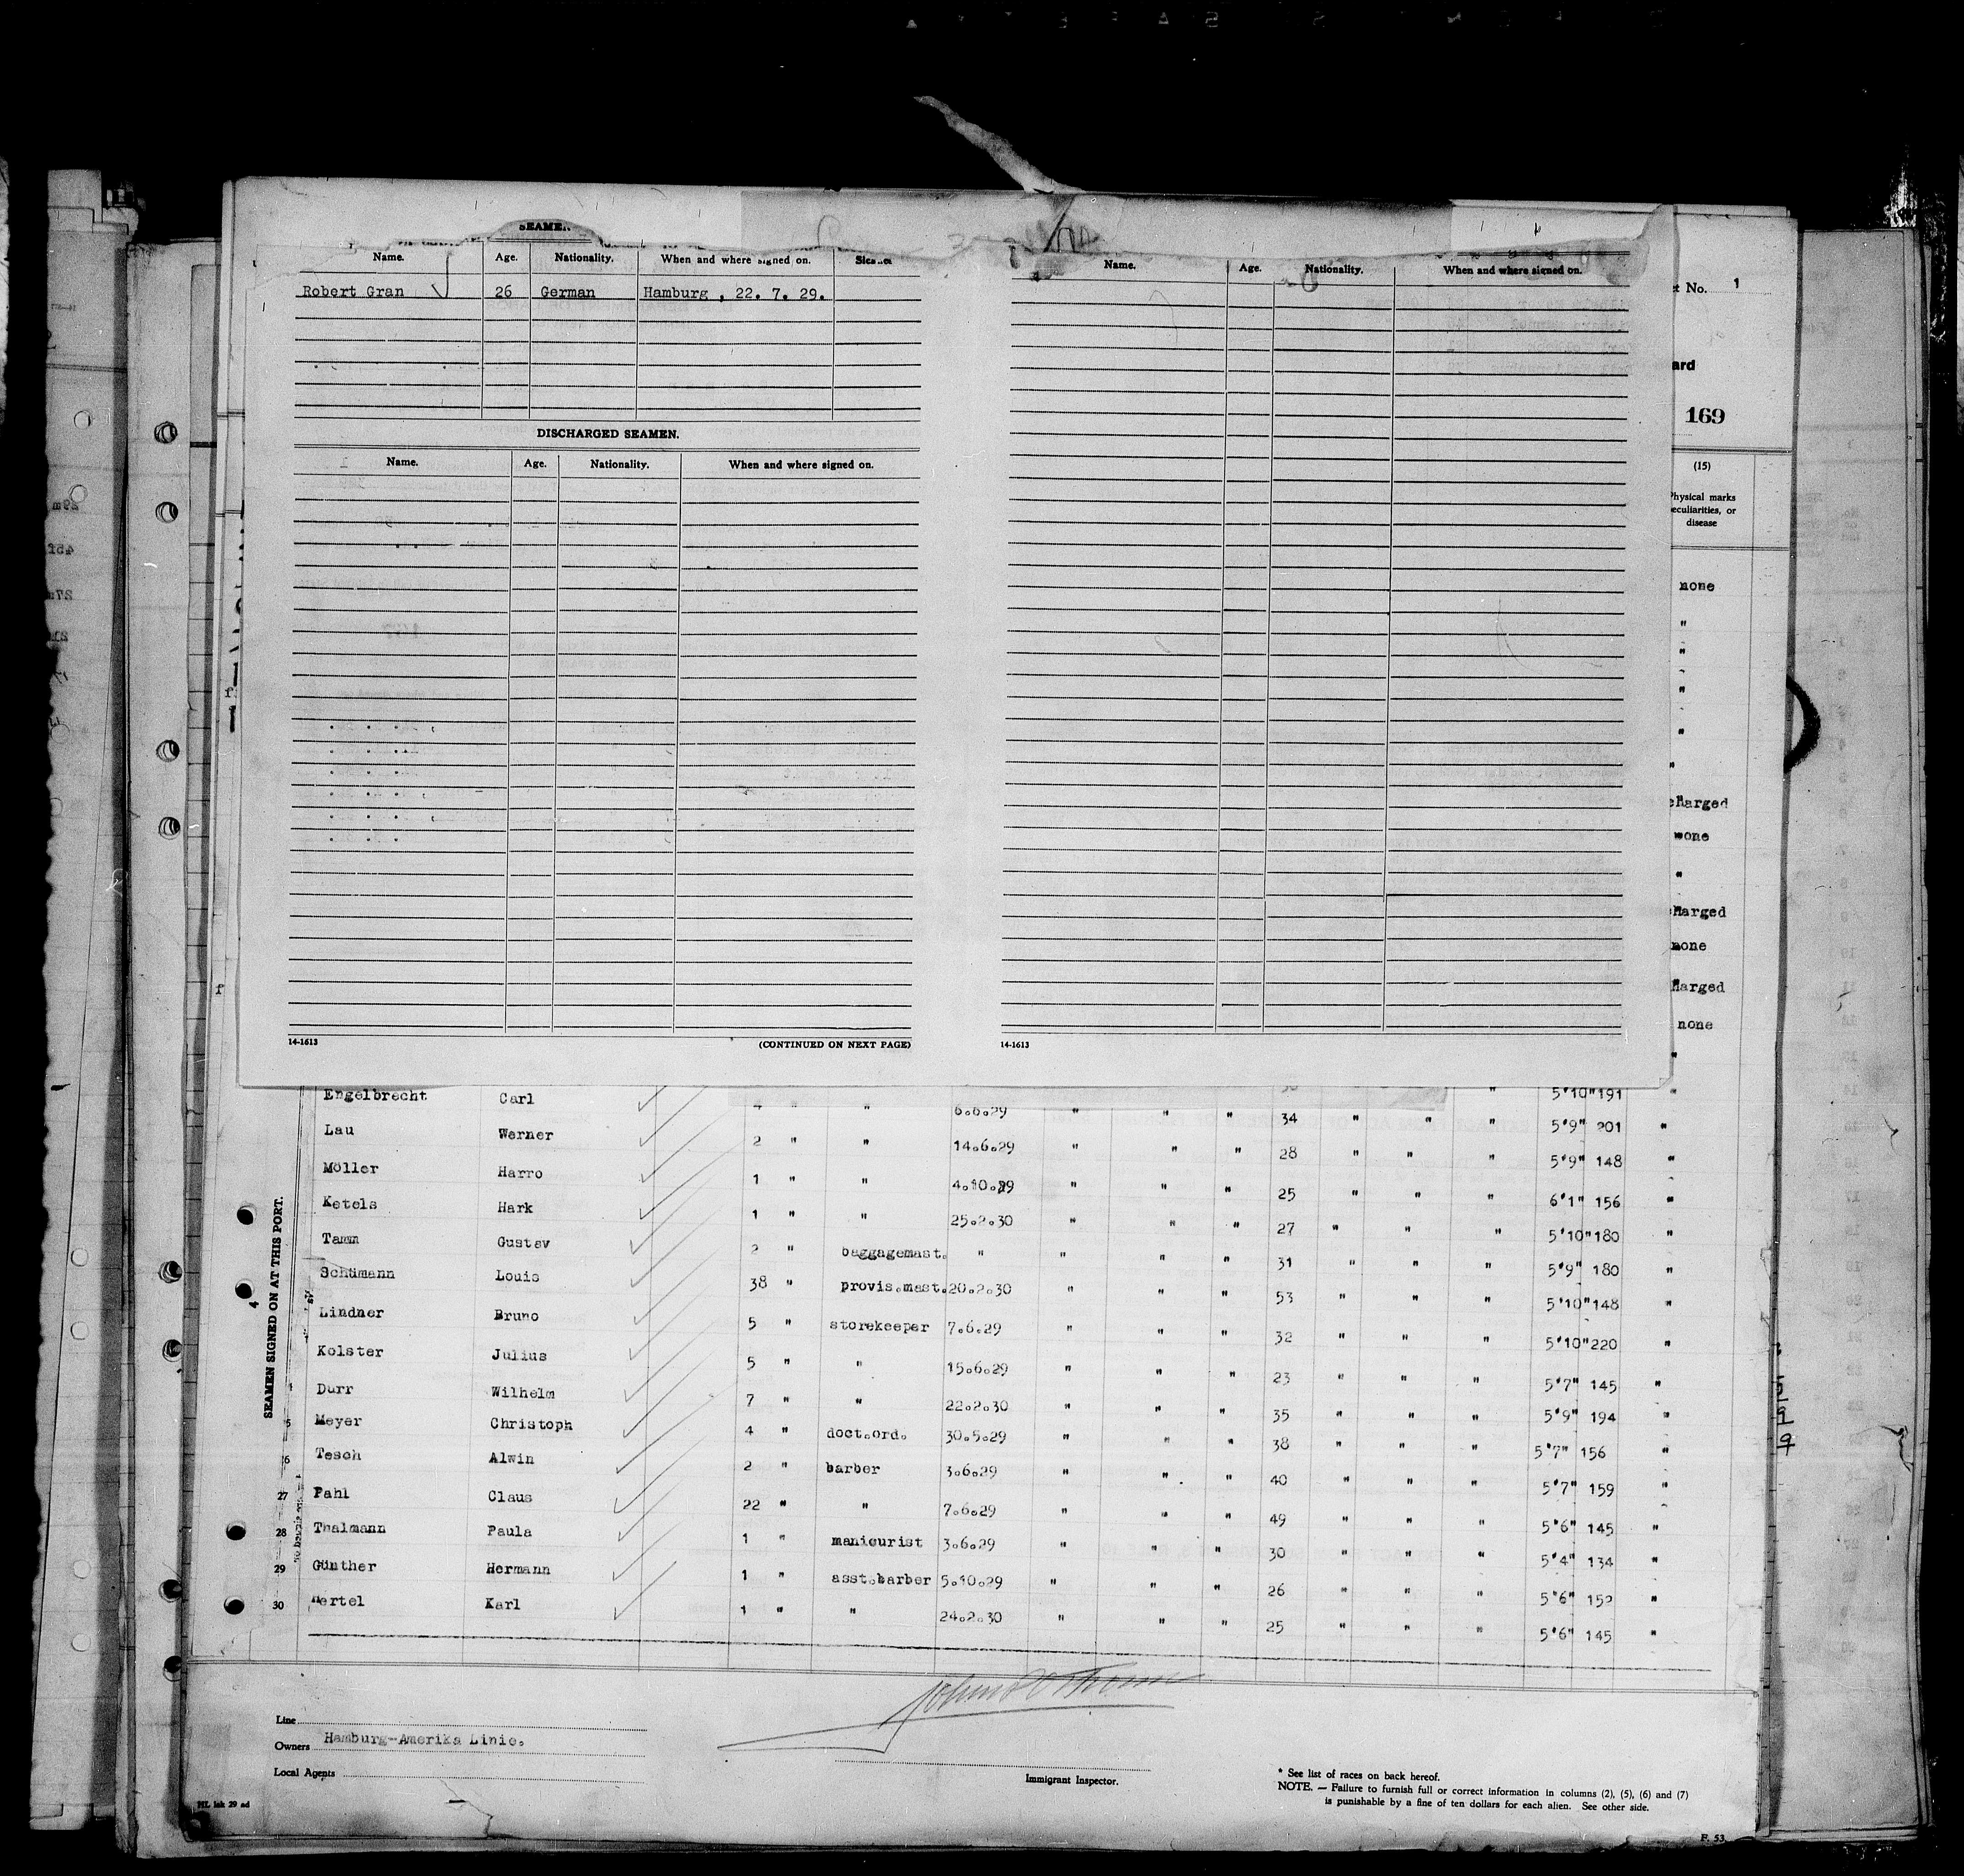 SEAMEN
Name. Age. Nationality. When and where signed on.
Robert Gran 26 German Hamburg , 22. 7. 29.
DISCHARGED SEAMEN.
Name. Age. Nationality. When and where signed on.
14-1613 (CONTINUED ON NEXT PAGE)
Name. Age. Nationality. When and where signed on.
14-1613
No. 1
ard
169
(15)
Physical marks
peculiarities, or
disease
none
"
"
"
"
"
charged
none
"
charged
none
charged
none
"
SEAMEN SIGNED ON AT THIS PORT.
4
Engelbrecht Carl 4 " " 6.6.29 " " " 34 " " " 5'10" 191 "
Lau Werner 2 " " 14.6.29 " " 28 " " " 5'9" 201 "
Möller Harro 1 " " 4.10.29 " " " 25 " " " 5'9" 148 "
Ketels Hark 1 " " 25.2.30 " " " 27 " " " 6'1" 156 "
Tamm Gustav 2 " baggagemast. " " " " 31 " " " 5'10" 180 "
Schümann Louis 38 " provis.mast. 20.2.30 " " " 53 " " " 5'9" 180 "
Lindner Bruno 5 " storekeeper 7.6.29 " " " 32 " " " 5'10" 148 "
Kolster Julius 5 " " 15.6.29 " " 23 " " " 5'10" 220 "
Durr Wilhelm 7 " " 22.2.30 " " " 35 " " " 5'7" 145 "
Meyer Christoph 4 " doct.ord. 30.5.29 " " " 38 " " " 5'9" 194 "
Tesch Alwin 2 " barber 3.6.29 " " " 40 " " " 5'7" 156 "
27 Pahl Claus 22 " " 7.6.29 " " " 49 " " " 5'7" 159 "
28 Thalmann Paula 1 " manicurist 3.6.29 " " " 30 " " " 5'6" 145 "
29 Günther Hermann 1 " asst.barber 5.10.29 " " " 26 " " " 5'4" 134 "
30 Hertel Karl 1 " " 24.2.30 " " " 25 " " " 5'6" 152 "
5'6" 145 "
Line
Owners Hamburg-Amerika Linie.
Local Agents
Immigrant Inspector.
* See list of races on back hereof.
NOTE. — Failure to furnish full or correct information in columns (2), (5), (6) and (7)
is punishable by a fine of ten dollars for each alien. See other side.
F. 53